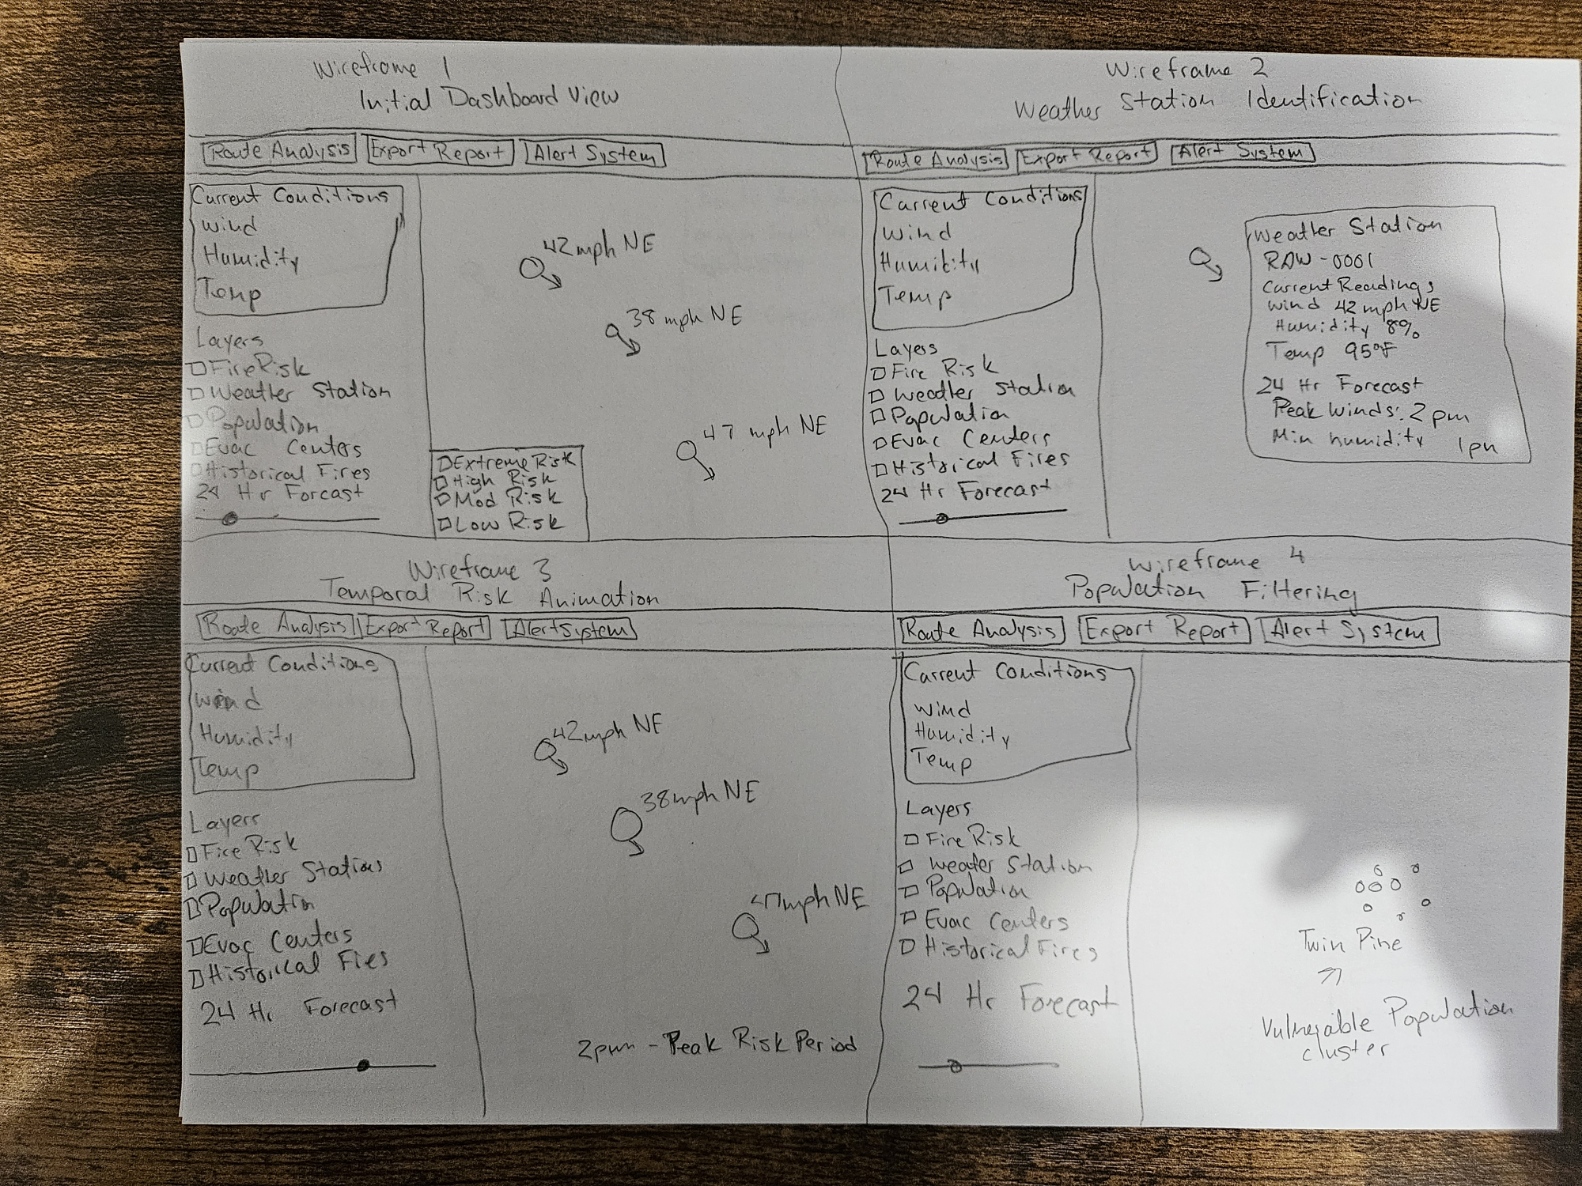 Wireframe 1
Initial Dashboard View
Route Analysis Export Report Alert System
Current Conditions
Wind
Humidity
Temp
Layers
Fire Risk
Weather Station
Population
Evac Centers
Historical Fires
24 Hr Forecast
42 mph NE
38 mph NE
47 mph NE
Extreme Risk
High Risk
Mod Risk
Low Risk
Wireframe 2
Weather Station Identification
Route Analysis Export Report Alert System
Current Conditions
Wind
Humidity
Temp
Layers
Fire Risk
Weather Station
Population
Evac Centers
Historical Fires
24 Hr Forecast
Weather Station
RAW-0001
Current Readings
Wind 42 mph NE
Humidity 8%
Temp 95°F
24 Hr Forecast
Peak Winds: 2 pm
Min humidity 1pm
Wireframe 3
Temporal Risk Animation
Route Analysis Export Report Alert System
Current Conditions
Wind
Humidity
Temp
Layers
Fire Risk
Weather Stations
Population
Evac Centers
Historical Fires
24 Hr Forecast
42 mph NE
38 mph NE
47 mph NE
2pm - Peak Risk Period
Wireframe 4
Population Filtering
Route Analysis Export Report Alert System
Current Conditions
Wind
Humidity
Temp
Layers
Fire Risk
Weather Station
Population
Evac Centers
Historical Fires
24 Hr Forecast
Twin Pine
Vulnerable Population
cluster